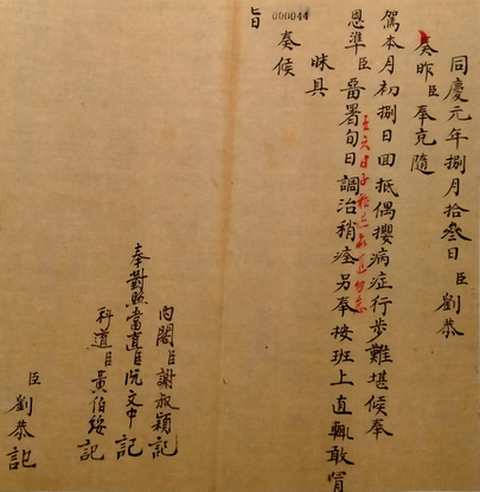 同慶元年捌月拾叁日臣劉恭
奏昨臣奉充隨
駕本月初捌日回抵偶攖病症行步難堪候奉
恩準臣留署旬日調治稍痊另奉按班上直輒敢冐
昧具
奏候
旨
000044
內閣臣謝叔穎記
奉對照當直臣阮文中記
科道臣黃伯綏記
臣劉恭記